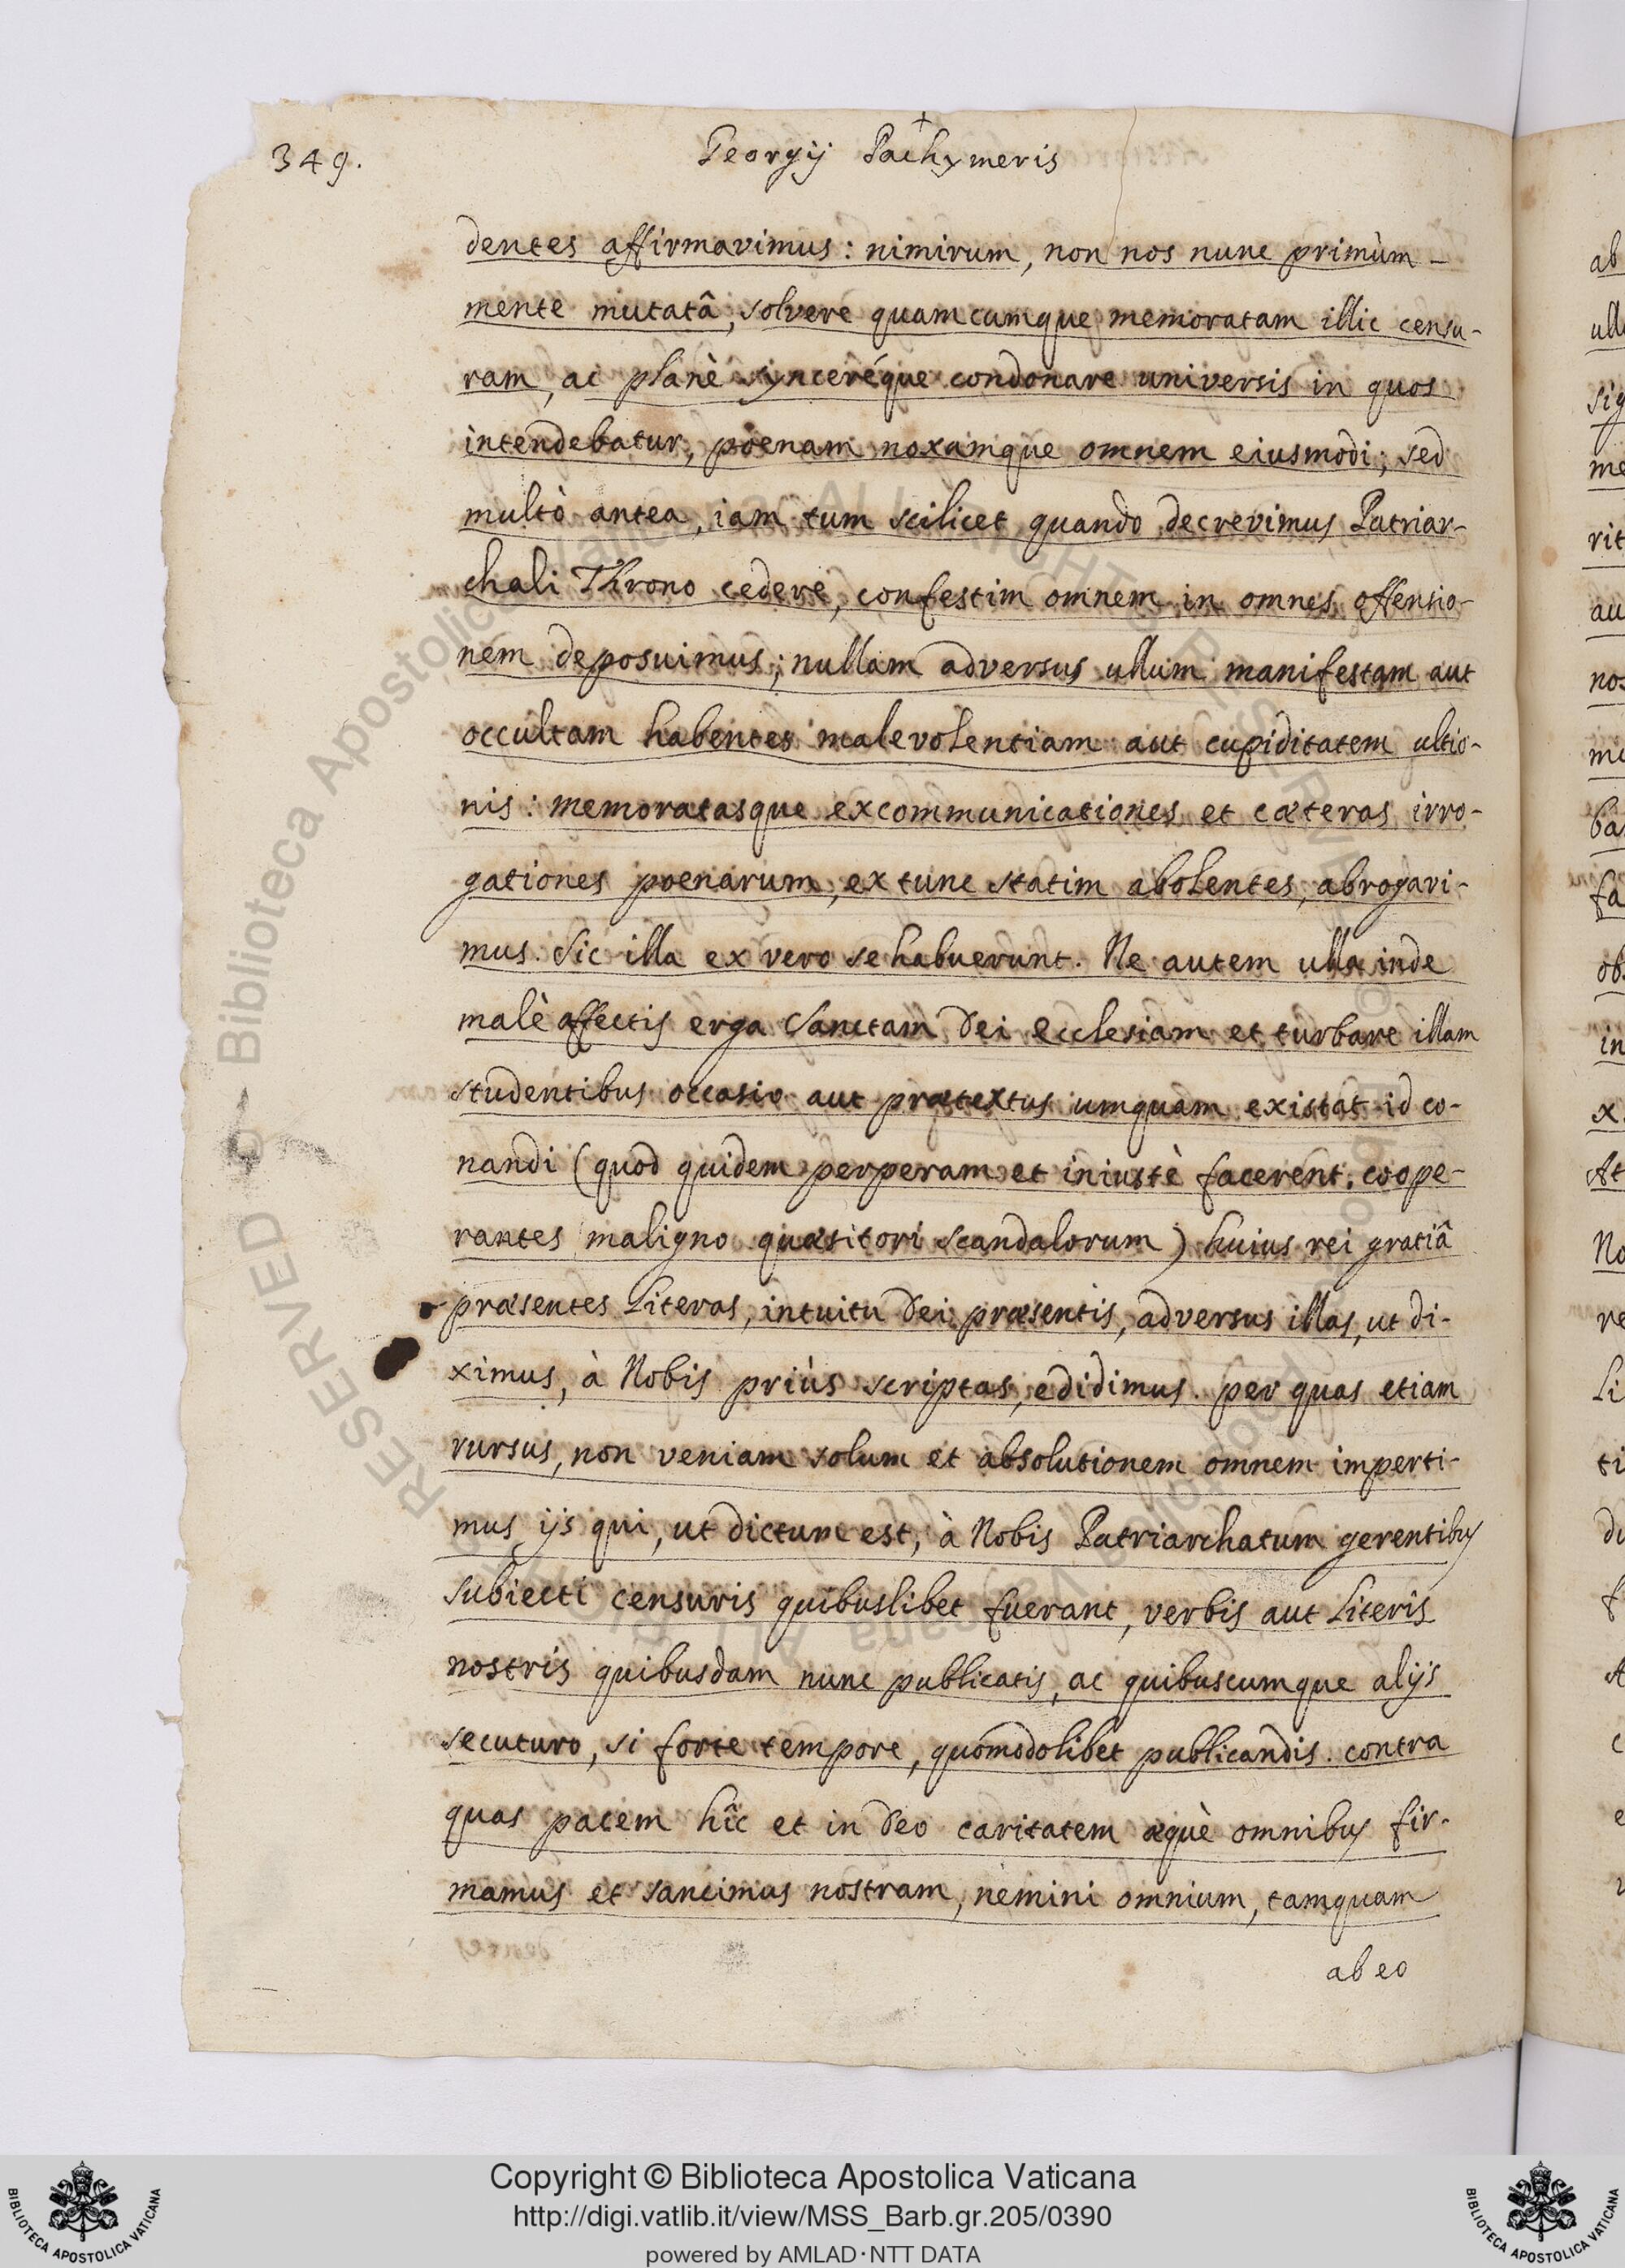 349.
Georgij Pachymeris
dentes affirmavimus: nimirum, non nos nunc primùm
mente mutatâ, solvere quamcumque memoratam illic censu-
ram, ac planè syncerèque condonare universis in quos
intendebatur, poenam noxamque omnem eiusmodi; sed
multò antea, iam tum scilicet quando decrevimus Patriar-
chali Throno cedere, confestim omnem in omnes offensio-
nem deposuimus; nullam adversus ullum manifestam aut
occultam habentes malevolentiam aut cupiditatem ultio-
nis: memoratasque excommunicationes et cæteras irro-
gationes poenarum, ex tunc statim abolentes, abrogavi-
mus. Sic illa ex vero se habuerunt. Ne autem ulla inde
malè affectis erga Sanctam Dei Ecclesiam et turbare illam
studentibus occasio aut prætextus umquam existat id co-
nandi (quod quidem perperam et iniustè facerent, coope-
rantes maligno quæsitori scandalorum) huius rei gratiâ
præsentes Literas, intuitu Dei præsentis, adversus illas, ut di-
ximus, à Nobis priùs scriptas, edidimus. per quas etiam
rursus, non veniam solum et absolutionem omnem imperti-
mus ijs qui, ut dictum est, à Nobis Patriarchatum gerentibus
subiecti censuris quibuslibet fuerant, verbis aut Literis
nostris quibusdam nunc publicatis, ac quibuscumque alijs
secuturo, si forte tempore, quomodolibet publicandis. contra
quas pacem hîc et in Deo caritatem æquè omnibus fir-
mamus et sancimus nostram, nemini omnium, tamquam
ab eo
ab
ull
sig
me
rit
au
nos
me
ba
fa
ob
in
ex
At
No
re
Li
ti
du
f
A
c
e
Biblioteca Apostolica Vaticana ALL RIGHTS RESERVED
Copyright © Biblioteca Apostolica Vaticana
http://digi.vatlib.it/view/MSS_Barb.gr.205/0390
powered by AMLAD·NTT DATA
BIBLIOTECA APOSTOLICA VATICANA
BIBLIOTECA APOSTOLICA VATICANA